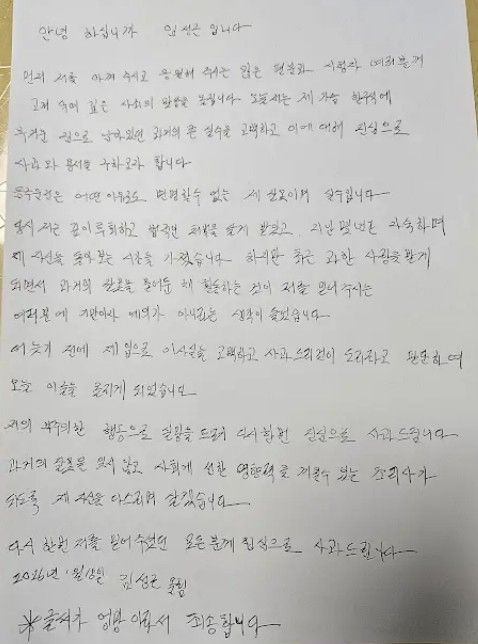 안녕 하십니까 임성근 입니다
먼저 저를 아껴 주시고 응원해 주시는 많은 팬분과 시청자 여러분께
고개 숙여 깊은 사죄의 말씀을 드립니다 오늘 저는 제 가슴 한구석에
무거운 짐으로 남아있던 과거의 큰 실수를 고백하고 이에 대해 진심으로
사과와 용서를 구하고자 합니다
음주운전은 어떤 이유로도 변명할수 없는 제 잘못이며 실수입니다
당시 저는 깊이 후회하고 법적인 처벌을 달게 받았고 지난 몇년은 자숙하며
제 자신을 돌아 보는 시간을 가졌습니다 하지만 최근 과한 사랑을 받게
되면서 과거의 잘못을 묻어둔 채 활동하는 것이 저를 믿어주시는
여러분에 기만이자 예의가 아니라는 생각이 들었습니다
더 늦기 전에 제 입으로 이사실을 고백하고 사과 드리것이 도리라고 판단하여
오늘 이글을 올리게 되었습니다
저의 부주의한 행동으로 실망을 드려 다시한번 진심으로 사과드립니다
과거의 잘못을 잊지 않고 사회에 선한 영향력을 끼칠수 있는 조리사가
되도록 제 자신을 다스리며 살겠습니다
다시 한번 저를 믿어 주셨던 모든 분께 진심으로 사과드립니다
2026년 임성근 올림
*글씨가 엉망 이라서 죄송합니다